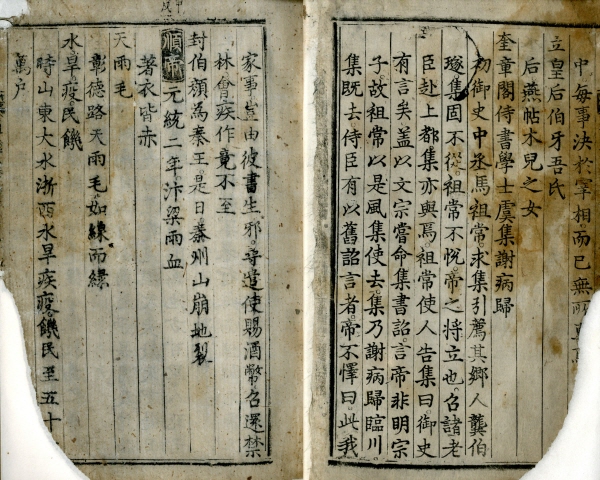 中每事決於宰相而已無所
立皇后伯牙吾氏
后燕帖木兒之女
奎章閣侍書學士虞集謝病歸
初御史中丞馬祖常求集引薦其鄉人龔伯
璲集固不從祖常不悅帝之將立也召諸老
臣赴上都集亦與焉祖常使人告集曰御史
有言矣盖以文宗嘗命集書詔言帝非明宗
子故祖常以是風集使去集乃謝病歸臨川
集既去侍臣有以舊詔言者帝不懌曰此我
家事豈由彼書生邪尋遣使賜酒幣召還禁
林會疾作竟不至
封伯顏為秦王是日秦州山崩地裂
元統二年汴梁雨血
著衣皆赤
天雨毛
彰德路天雨毛如線而綠
水旱疫民饑
時山東大水浙西水旱疾疫饑民至五十
萬戶